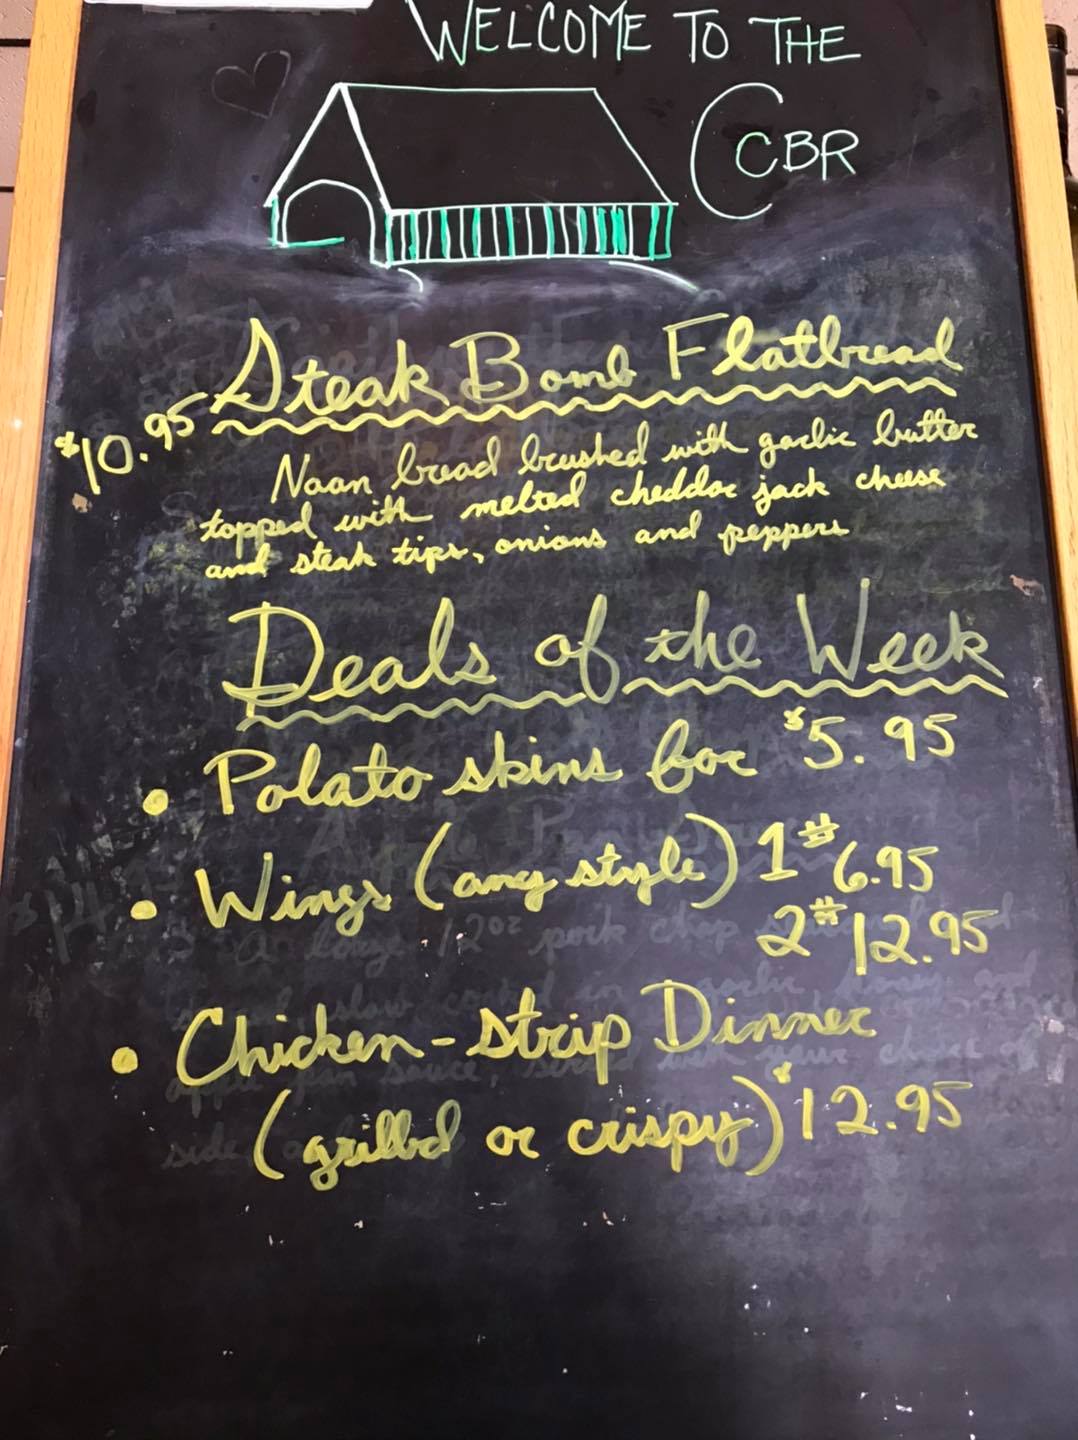 WELCOME TO THE
CBR
Steak Bomb Flatbread
$10.95
Naan bread brushed with garlic butter
topped with melted cheddar jack cheese
and steak tips, onions and peppers
Deals of the Week
• Potato skins for $5.95
• Wings (any style) 1# 6.95
2# 12.95
• Chicken-Strip Dinner
(grilled or crispy) $12.95